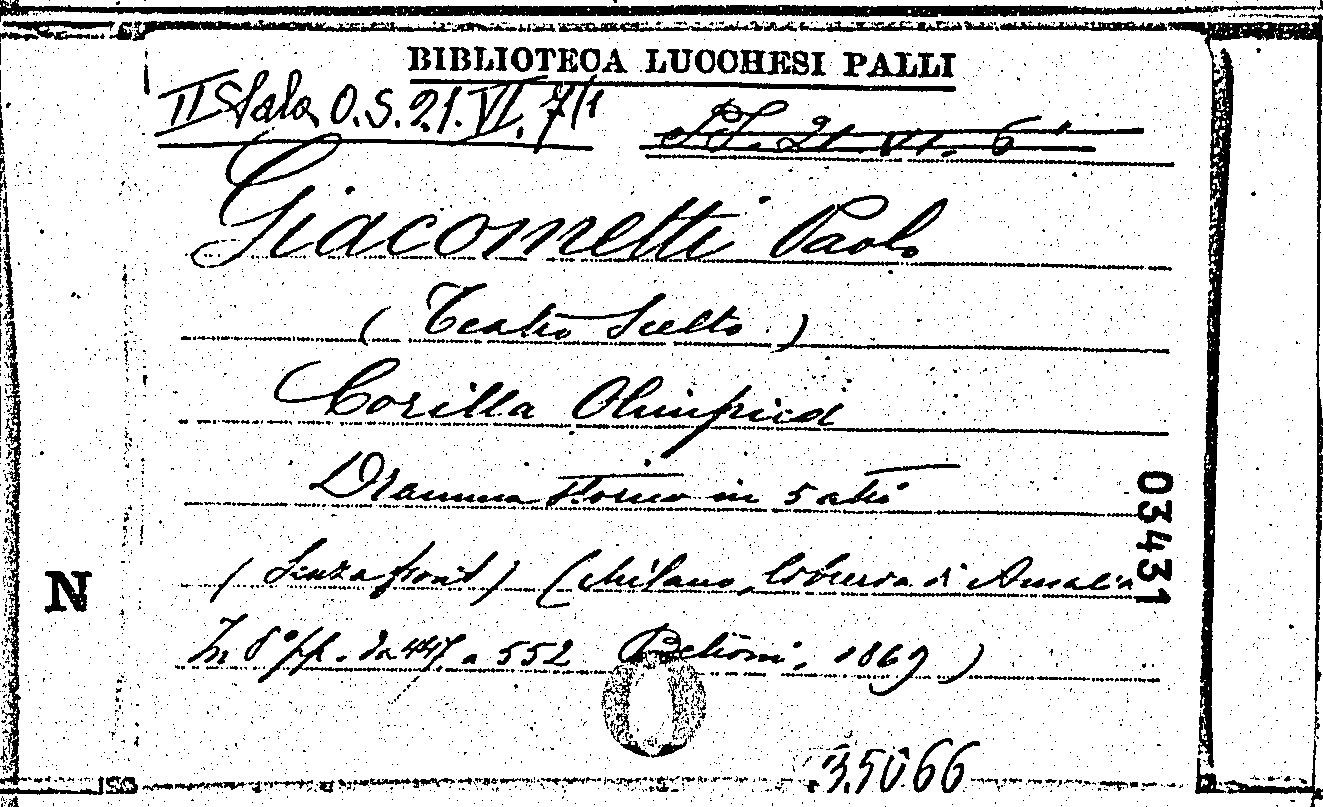 BIBLIOTECA LUCCHESI PALLI
II Sala O.S. 21. VI. 7/1
21. VI. 6
Giacometti Paolo
(Teatro Scelto)
Corilla Olimpica
Dramma storico in 5 atti
(Senza front) (Milano, libreria di Amalia
In 8° pp. da 447 a 552 Bettoni, 1869)
35066
03431
N